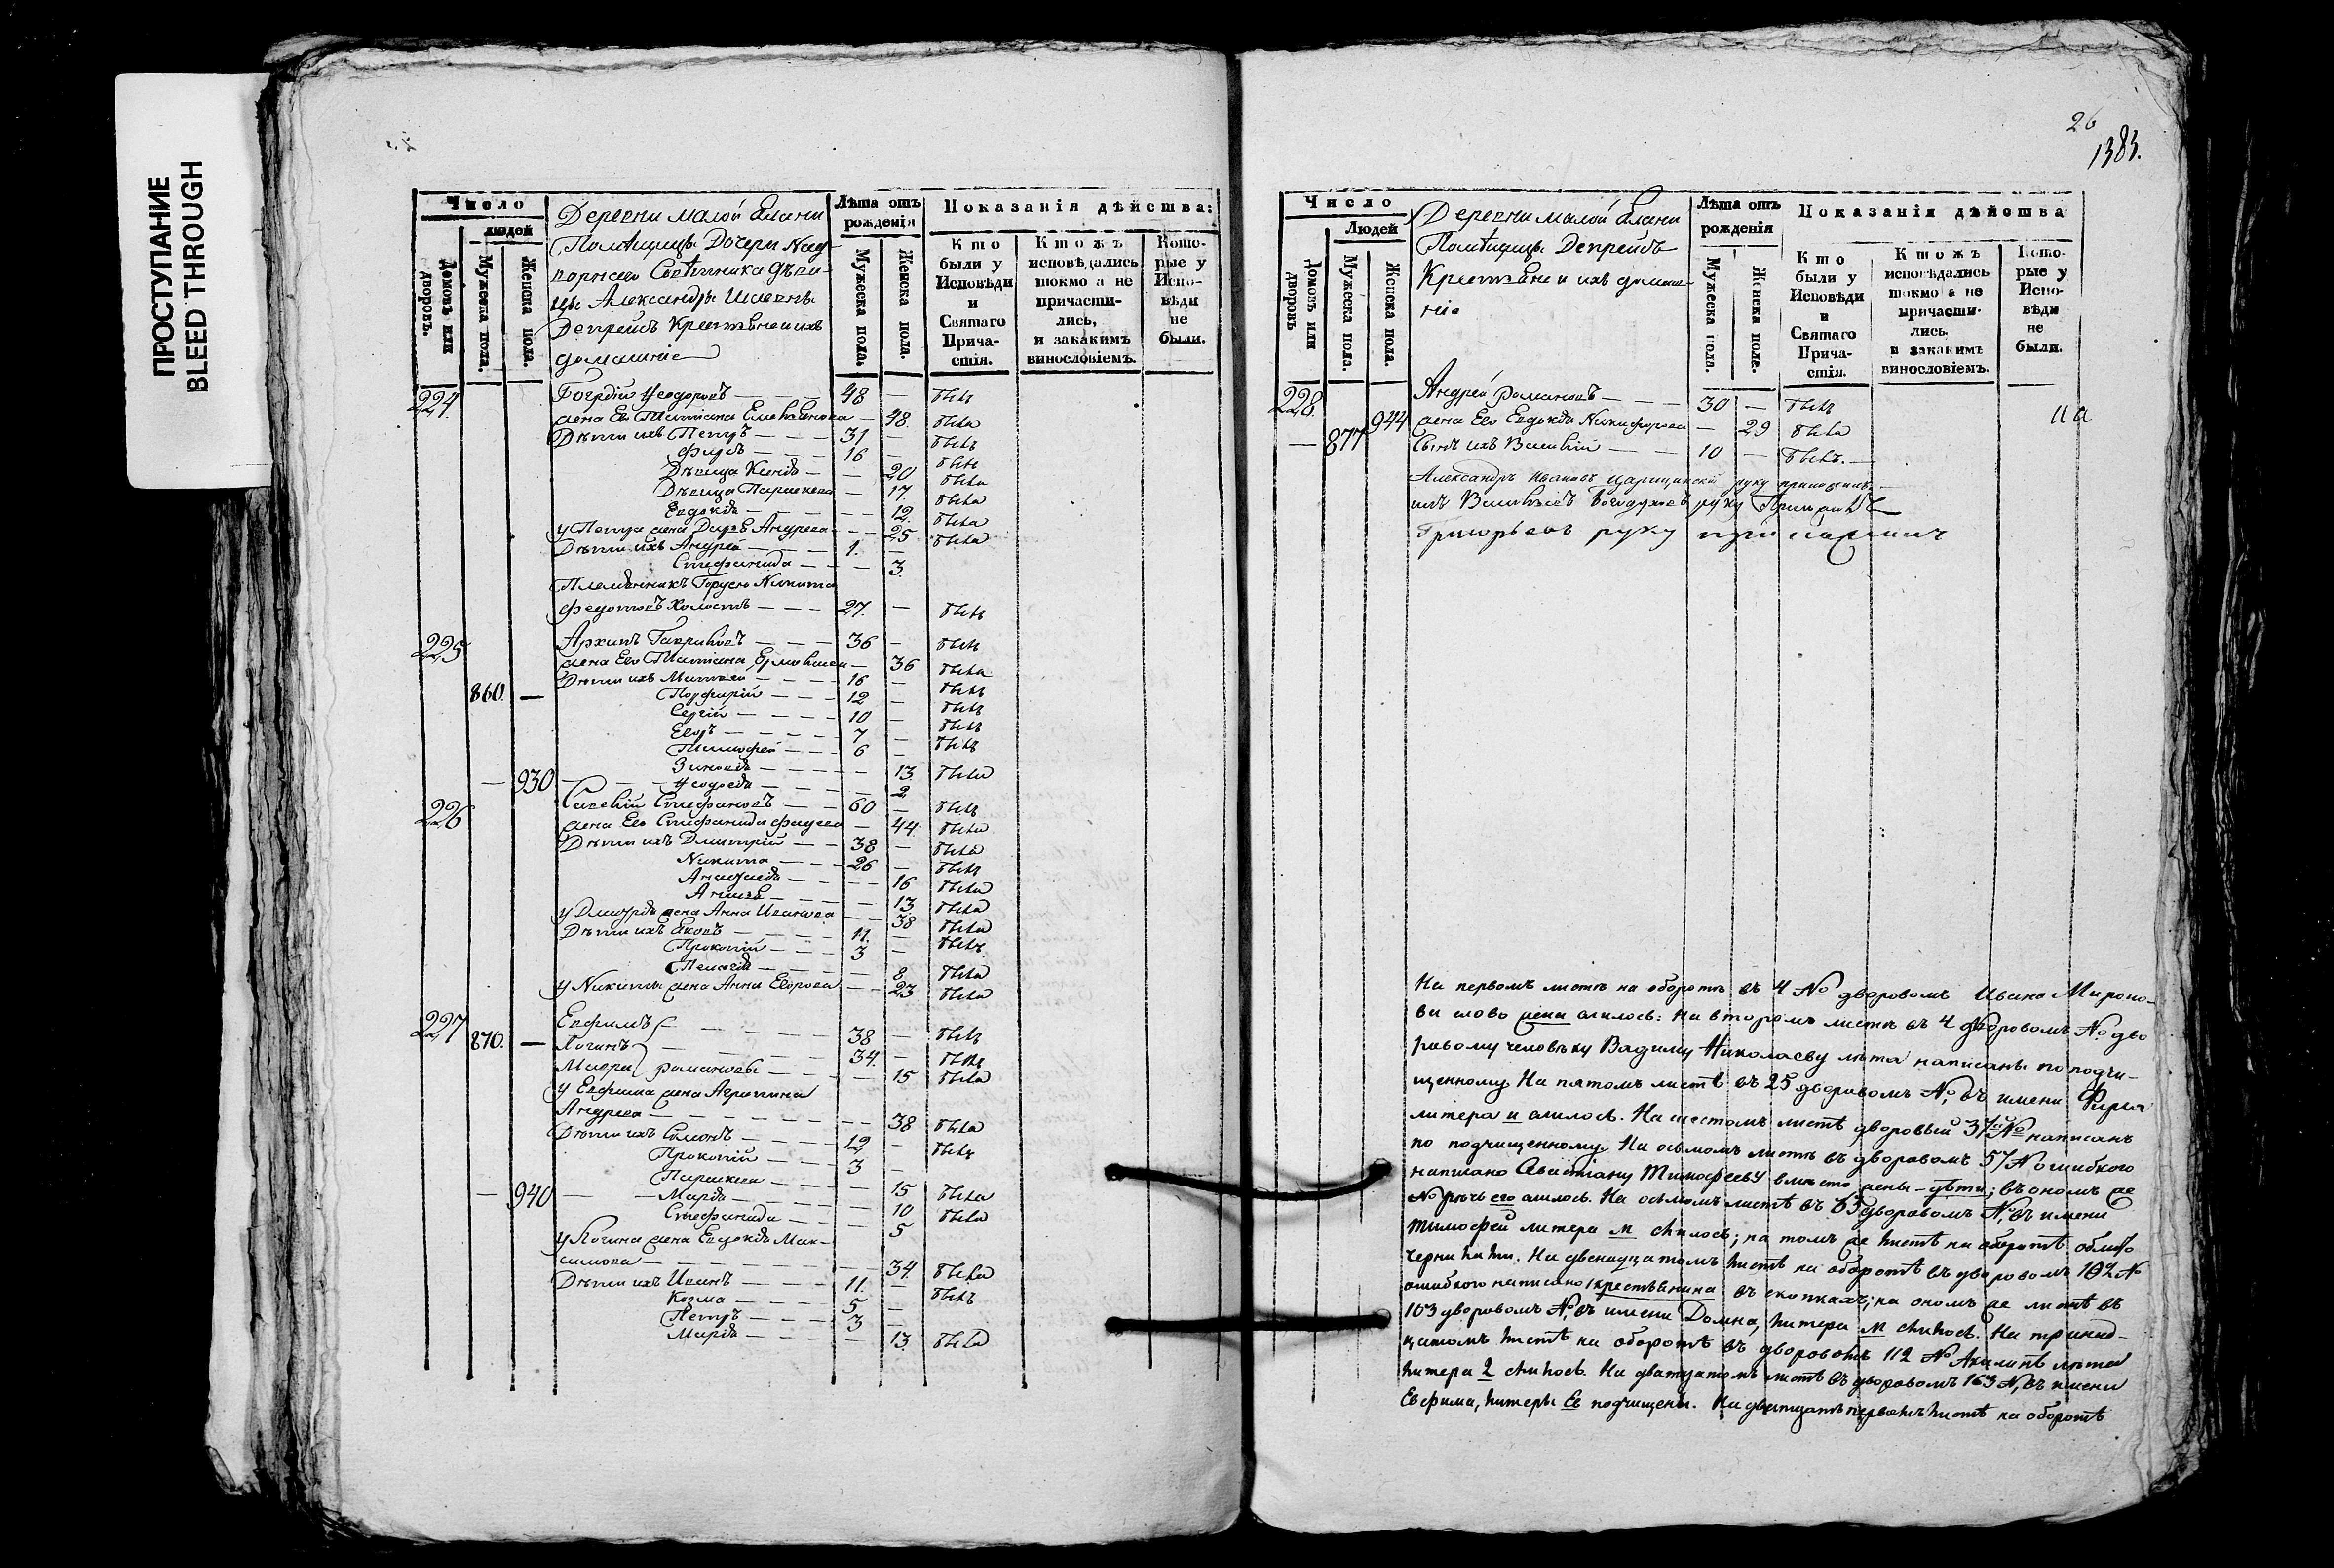 ПРОСТУПАНИЕ
BLEED THROUGH
Число
людей
Домовъ или дворовъ.
Мужеска пола.
Женска пола.
Деревни малой Елани
Помѣщицы Дочери Над-
ворнаго Совѣтника дѣви-
цы Александры
Депрейсъ Крестьяне и ихъ
домашніе
Лѣта отъ рожденія
Мужеска пола.
Женска пола.
Показанія дѣйства:
Кто были у Исповѣди и Святаго Причастія.
Кто жъ исповѣдались токмо а не причастились, и за какимъ винословіемъ.
Которые у Исповѣди не были.
224. Ѳеодоровъ 48 — былъ
жена Ево Татіана Емельянова — 48. была
Дѣти ихъ Петръ 31 — былъ
16 — былъ
Дѣвица — 20 была
Дѣвица Параскева — 17. была
Евдокія — 12. была
у Петра жена Дарья Андреева — 25 была
Дѣти ихъ Андрей 1. —
Стефанида — 3.
Племянникъ Никита
Федотовъ Холостъ 27. — былъ
225 Архипъ Гавриловъ 36 — былъ
жена Ево Татіана Ермолаева — 36 была
Дѣти ихъ Матвей 16 — былъ
860. — Порфирій 12 — былъ
Сергій 10 — былъ
Егоръ 7 — былъ
Тимофей 6 — былъ
Зиновія — 13. была
— 930 — Ѳеодосія — 2
226 Савелій Стефановъ 60 — былъ
жена Ево Стефанида — 44. была
Дѣти ихъ Дмитрій 38 — была
Никита 26 — былъ
— 16 была
— 13 была
у Дмитрія жена Анна Иванова — 38 была
Дѣти ихъ Яковъ 11. — былъ
Прокопій 3 —
Пелагія — 8 была
у Никиты жена Анна Егорова — 23 была
227 Евфимъ 38 — былъ
870. — Логинъ 34. — былъ
Марья Романовы — 15 была
У Евфима жена Агрипина
Андреева — 38 была
Дѣти ихъ Симонъ 12 — былъ
Прокопій 3 —
Параскева — 15 была
— 940 — Марія — 10 была
Стефанида — 5
у Логина жена Евдокія Мак-
симова — 34. была
Дѣти ихъ Иванъ 11. — былъ
Козма 5 —
Петръ 3 —
Марія — 13. была
26
1383.
Число
Людей
Домовъ или дворовъ
Мужеска пола.
Женска пола.
Деревни малой Елани
Помѣщицы Депрейсъ
Крестьяне и ихъ домаш-
ніе
Лѣта отъ рожденія
Мужеска пола.
Женска пола.
Показанія дѣйства
Кто были у Исповѣди и Святаго Причастія.
Кто жъ исповѣдались токмо а не причастились. и за какимъ винословіемъ.
Которые у Исповѣди не были.
228. Андрей Романовъ 30 — былъ
944 жена Ево Евдокія Никифорова — 29 была
— 877 Сынъ ихъ Василій 10 — былъ. —
Александръ Ивановъ Царицынскій руку приложилъ.
руку Приложилъ
Григорьевъ руку приложилъ
На первомъ листѣ на оборотѣ въ 4 № дворовомъ Ивана Мироно-
ва слово жена слилось: На второмъ листѣ въ 4 дворовомъ № дво
ровому человѣку Вадиму Николаеву лѣта написаны по подчи-
щенному На пятомъ листѣ въ 25 дворовомъ №, въ имени
литера и слилось. На шестомъ листѣ дворовый 37й № написанъ
по подчищенному. На осьмомъ листѣ въ дворовомъ 57 № ошибкою
написано Тимофееву вмѣсто жены – дѣти; въ ономъ же
№ рѣчь его слилось. На осьмомъ листѣ въ 63 дворовомъ №, въ имени
Тимофей литера м слилось; на томъ же листѣ на оборотѣ облито
чернилами. На двенадцатомъ листѣ на оборотѣ въ дворовомъ 102 №
ошибкою написано крестьянина въ скопкахъ; на ономъ же листѣ въ
103 дворовомъ №, въ имени Домна, литера м слилось. На тринад-
цатомъ листѣ на оборотѣ въ дворовомъ 112 № Акилинѣ лѣта
литера 2 слилось. На дватцатомъ листѣ въ дворовомъ 163 №, въ имени
Евфима, литеры Ев подчищены. На дватцать первомъ листѣ на оборотѣ